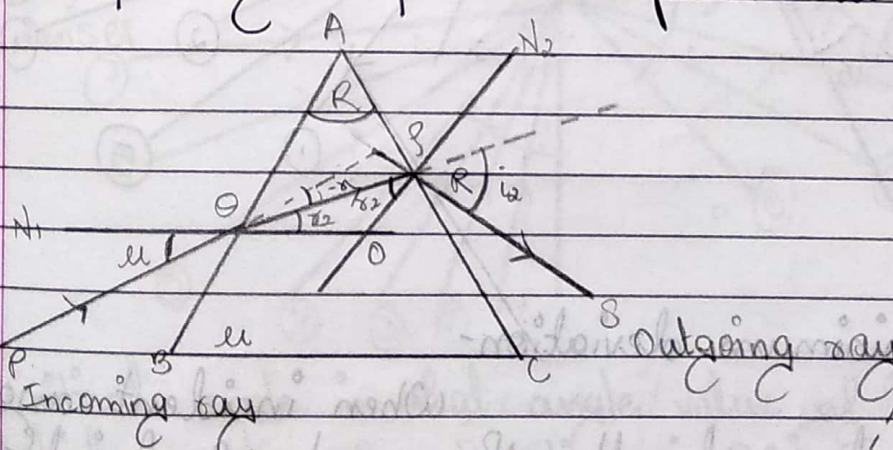 A
N2
R
S
i2
R
r2
r2
Q
N1
μ
O
S
P
B
μ
C
Outgoing ray
Incoming ray